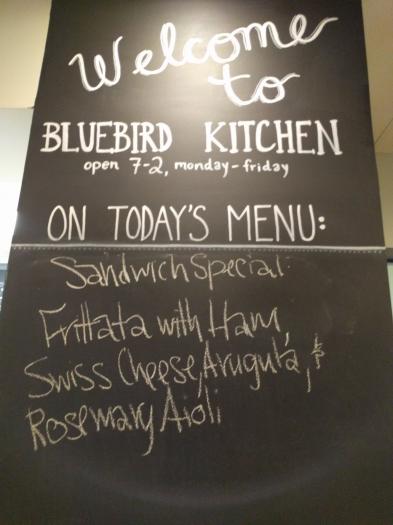 Welcome
to
BLUEBIRD KITCHEN
open 7-2, monday-friday
ON TODAY'S MENU:
Sandwich Special:
Frittata with Ham,
Swiss Cheese, Arugula, &
Rosemary Aioli